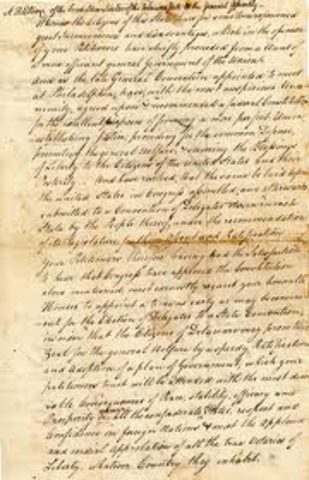 A Petition of the Freeholders of the Delaware State to the General Assembly
Whereas the Citizens of this State have for some time experienced
great Inconveniences and disadvantages, which in the opinion
of your Petitioners have chiefly proceeded from a Want of
a more efficient general Government of the Union
And as the late General Convention appointed to meet
at Philadelphia, have, with the most auspicious Una-
nimity, agreed upon & recommended a federal Constitution
for the excellent purpose of forming a more perfect Union
establishing Justice, providing for the common Defence,
promoting the general Welfare & securing the Blessings
of Liberty to the Citizens of the United States and their
Posterity. And have resolved, that the same be laid before
the United States in Congress assembled, and afterwards
submitted to a Convention of Delegates chosen in each
State by the People thereof, under the recommendation
of its Legislature, for their Assent and Ratification
Your Petitioners therefore having had the Satisfaction
to hear that Congress have approved the Constitution
above mentioned, most earnestly request your honorable
Houses to appoint a time as early as may be conveni-
ent for the Election of Delegates to a State Convention,
in order that the Citizens of Delaware may prove their
Zeal for the general Welfare by a speedy Ratification
and adoption of a plan of Government, which your
petitioners trust will be attended with the most desir-
able Consequences of Peace, stability, efficacy and
Prosperity to all the confederate States, respect and
Confidence in foreign Nations & meet the applause
and ardent approbation of all the true Votaries of
Liberty, whatever Country they inhabit.